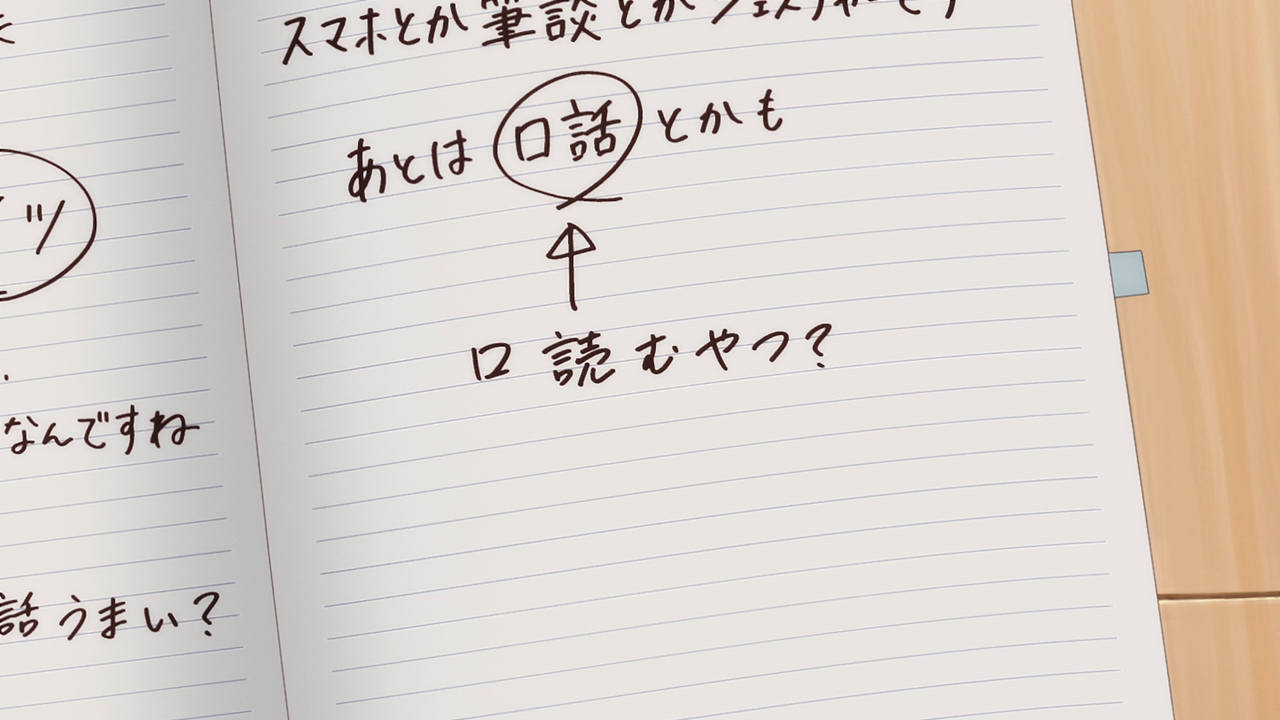 ツ
なんですね
話うまい?
スマホとか筆談とかジェスチャーです
あとは口話とかも
口読むやつ?